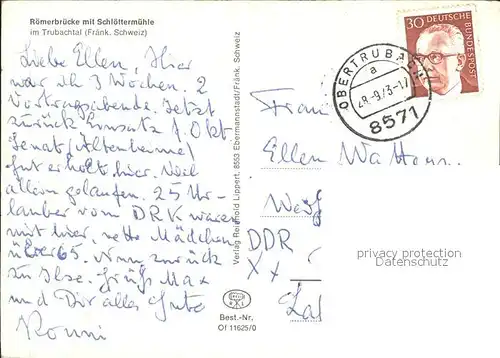 Römerbrücke mit Schlöttermühle
im Trubachtal (Fränk. Schweiz)
Liebe Ellen, Hier
war ich 3 Wochen. 2
Vortragsabende. Jetzt
zurück Einsatz 1. Okt
Senat (Altenheime)
gut erholt hier. Viel
allem gelaufen. 25 Ur-
lauber vom DRK waren
mit hier, nette Mädchen
über 65. Nun zurück
zu Ilse. Grüß Max
und Dir alles Gute
Ronni
Verlag Reinhold Lippert, 8553 Ebermannstadt/Fränk. Schweiz
Best.-Nr.
Of 11625/0
30 DEUTSCHE
BUNDESPOST
OBERTRUBACH
a
28.-9.73-17
8571
Frau
Ellen
DDR
XX
privacy protection
Datenschutz